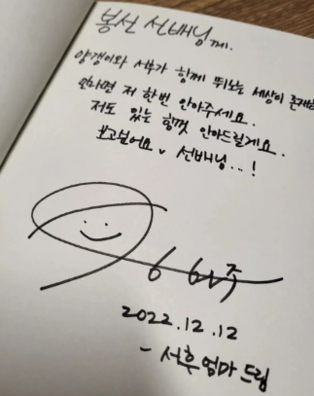 봉선 선배님께.
양갱이와 서후가 함께 뛰노는 세상이 존재한
다면 저 한번 안아주세요.
저도 있는 힘껏 안아드릴게요.
보고싶어요 선배님...!
2022.12.12
- 서후엄마 드림